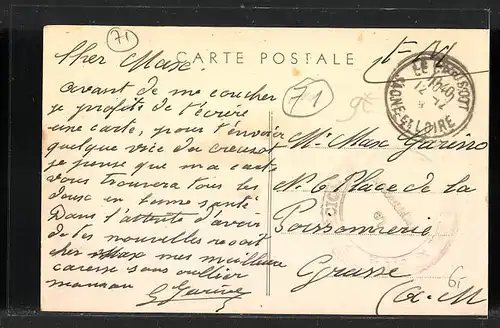 71
CARTE POSTALE
F. M.
Cher Max.
avant de me coucher
je profite de t'écrire
une carte, pour t'envoier
quelque vue du creusot
je pense que ma carte
vous trouvera tous les
deux en bonne santé
Dans l'attente d'avoir
de tes nouvelles reçoit
cher Max mes meilleurs
caresse sans oublier
maman
71
LE CREUSOT
SAONE-ET-LOIRE
Mr Max Garino
No 6 Place de la
Poissonnerie
Grasse
(A-M)